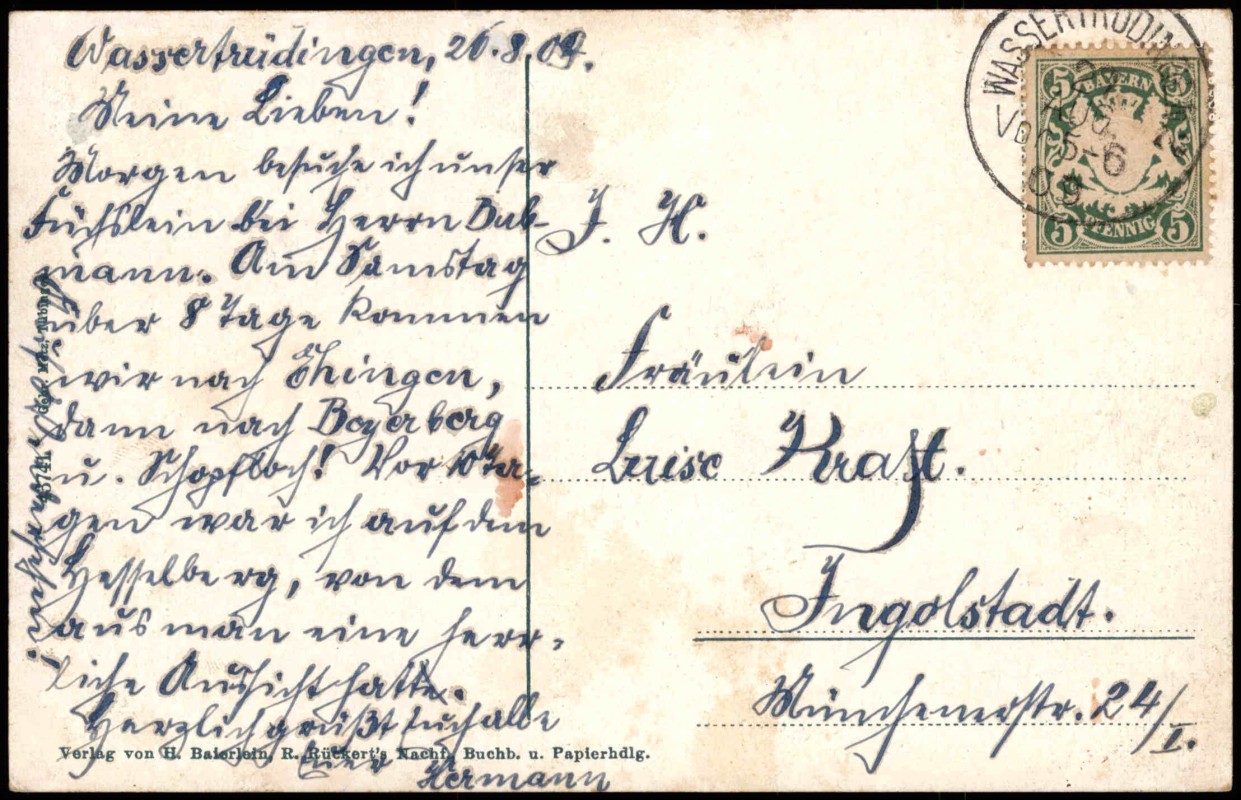 Wassertrüdingen, 26.8.09.
Meine Lieben!
Morgen besuche ich unser
Füchslein bei Herrn Dub-
mann. Am Samstag
über 8 Tage kommen
wir nach Ehingen,
dann nach Beyerberg
u. Schopfloch! Vor 10 Ta-
gen war ich auf dem
Hesselberg, von dem
aus man eine herr-
liche Aussicht hatte.
Herzlich grüßt Euch alle
Euer
Hermann
Verlag von H. Baierlein, R. Rückert's Nachf., Buchb. u. Papierhdlg.
WASSERTRÜDINGEN
Vor 5-6
09
BAYERN
5 5
5 PFENNIG 5
J. H.
Fräulein
Luise Kraft.
Ingolstadt.
Münchenerstr. 24/I.